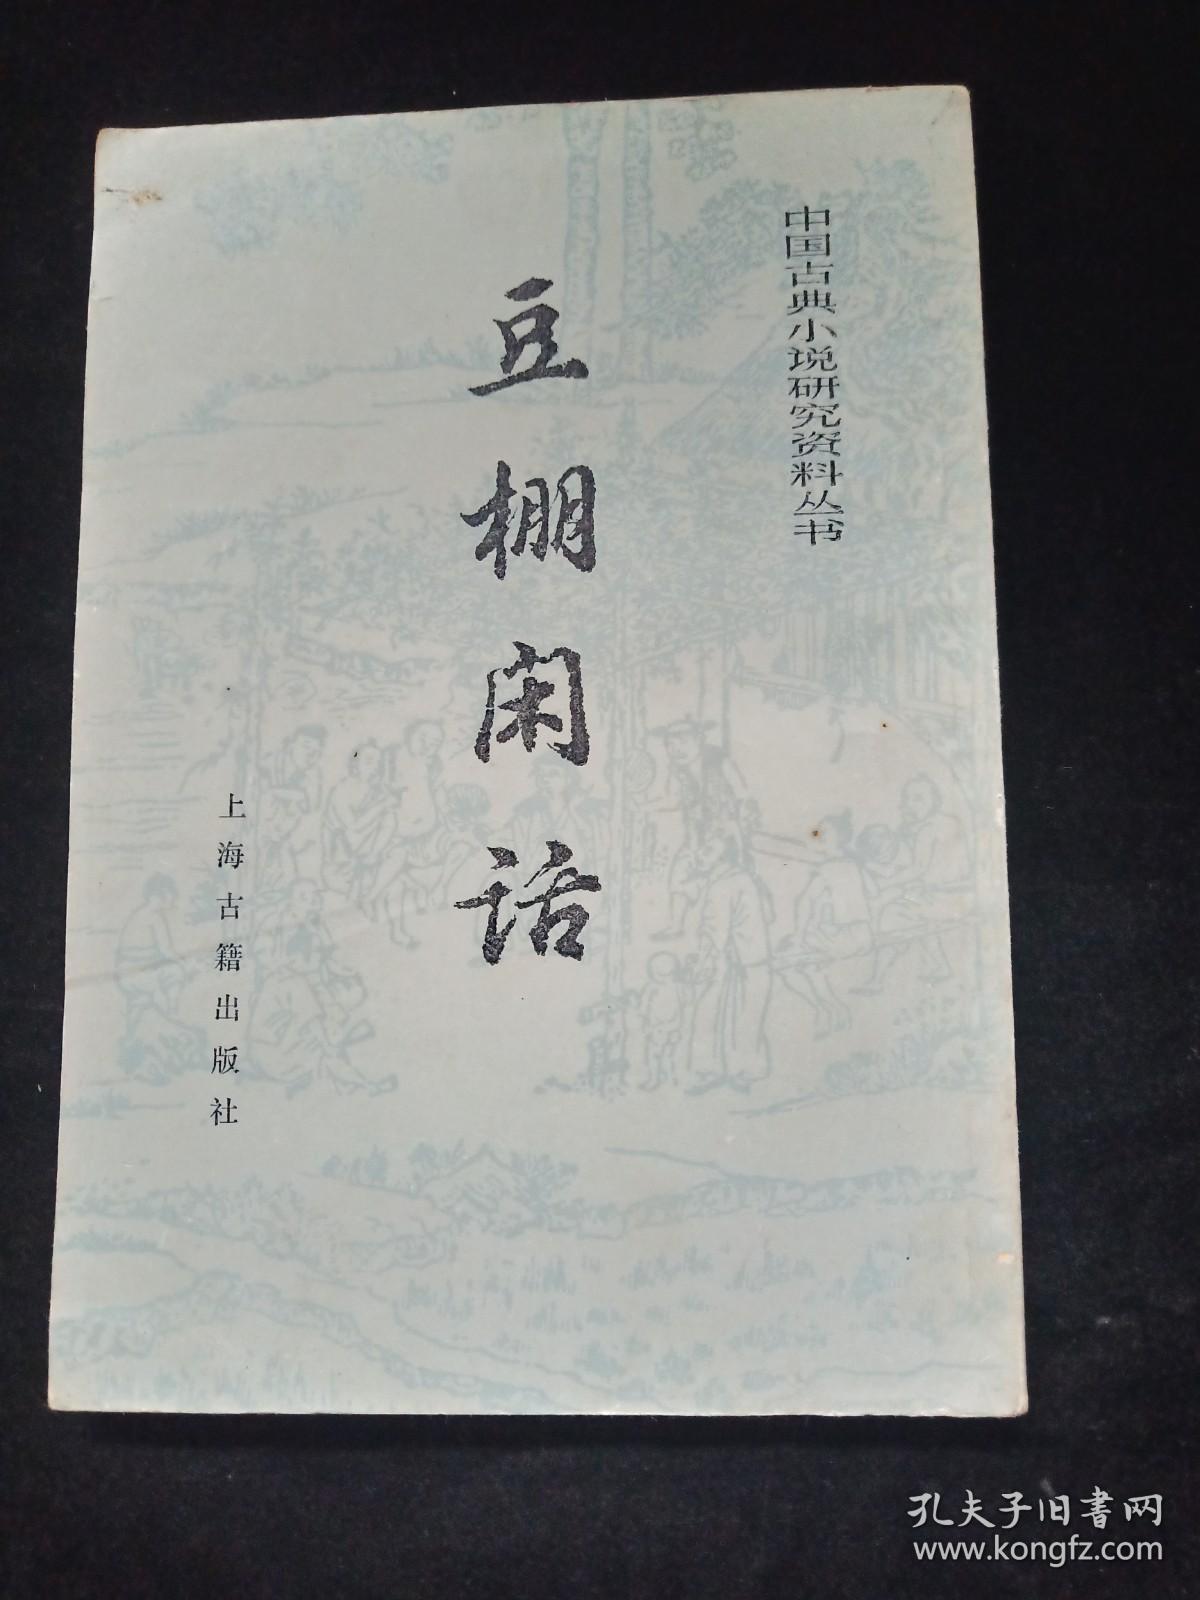 中国古典小说研究资料丛书
豆棚闲话
上海古籍出版社
孔夫子旧書网
www.kongfz.com